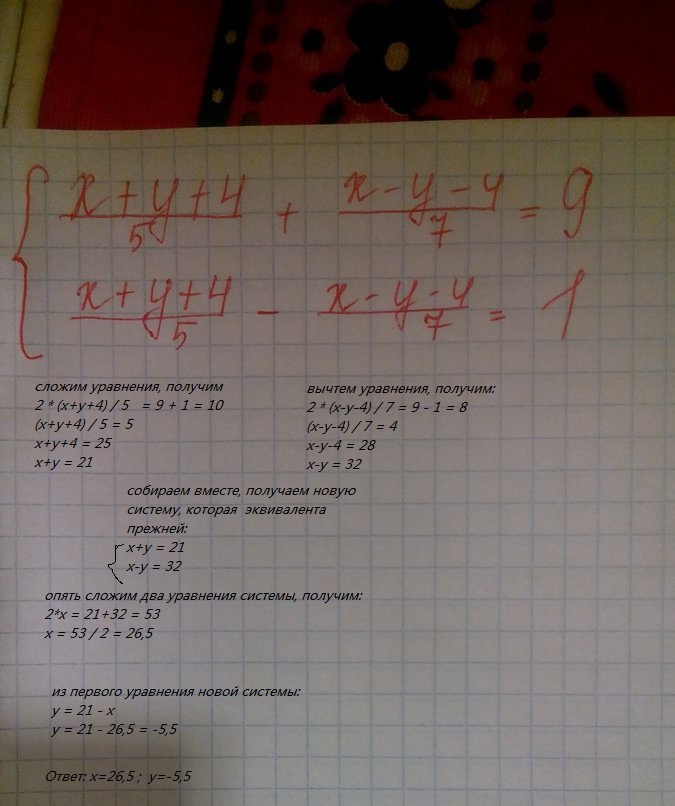 x+y+4/5 + x-y-4/7 = 9
x+y+4/5 - x-y-4/7 = 1
сложим уравнения, получим
2 * (x+y+4) / 5 = 9 + 1 = 10
(x+y+4) / 5 = 5
x+y+4 = 25
x+y = 21
вычтем уравнения, получим:
2 * (x-y-4) / 7 = 9 - 1 = 8
(x-y-4) / 7 = 4
x-y-4 = 28
x-y = 32
собираем вместе, получаем новую
систему, которая эквивалента
прежней:
x+y = 21
x-y = 32
опять сложим два уравнения системы, получим:
2*x = 21+32 = 53
x = 53 / 2 = 26,5
из первого уравнения новой системы:
y = 21 - x
y = 21 - 26,5 = -5,5
Ответ: x=26,5 ; y=-5,5